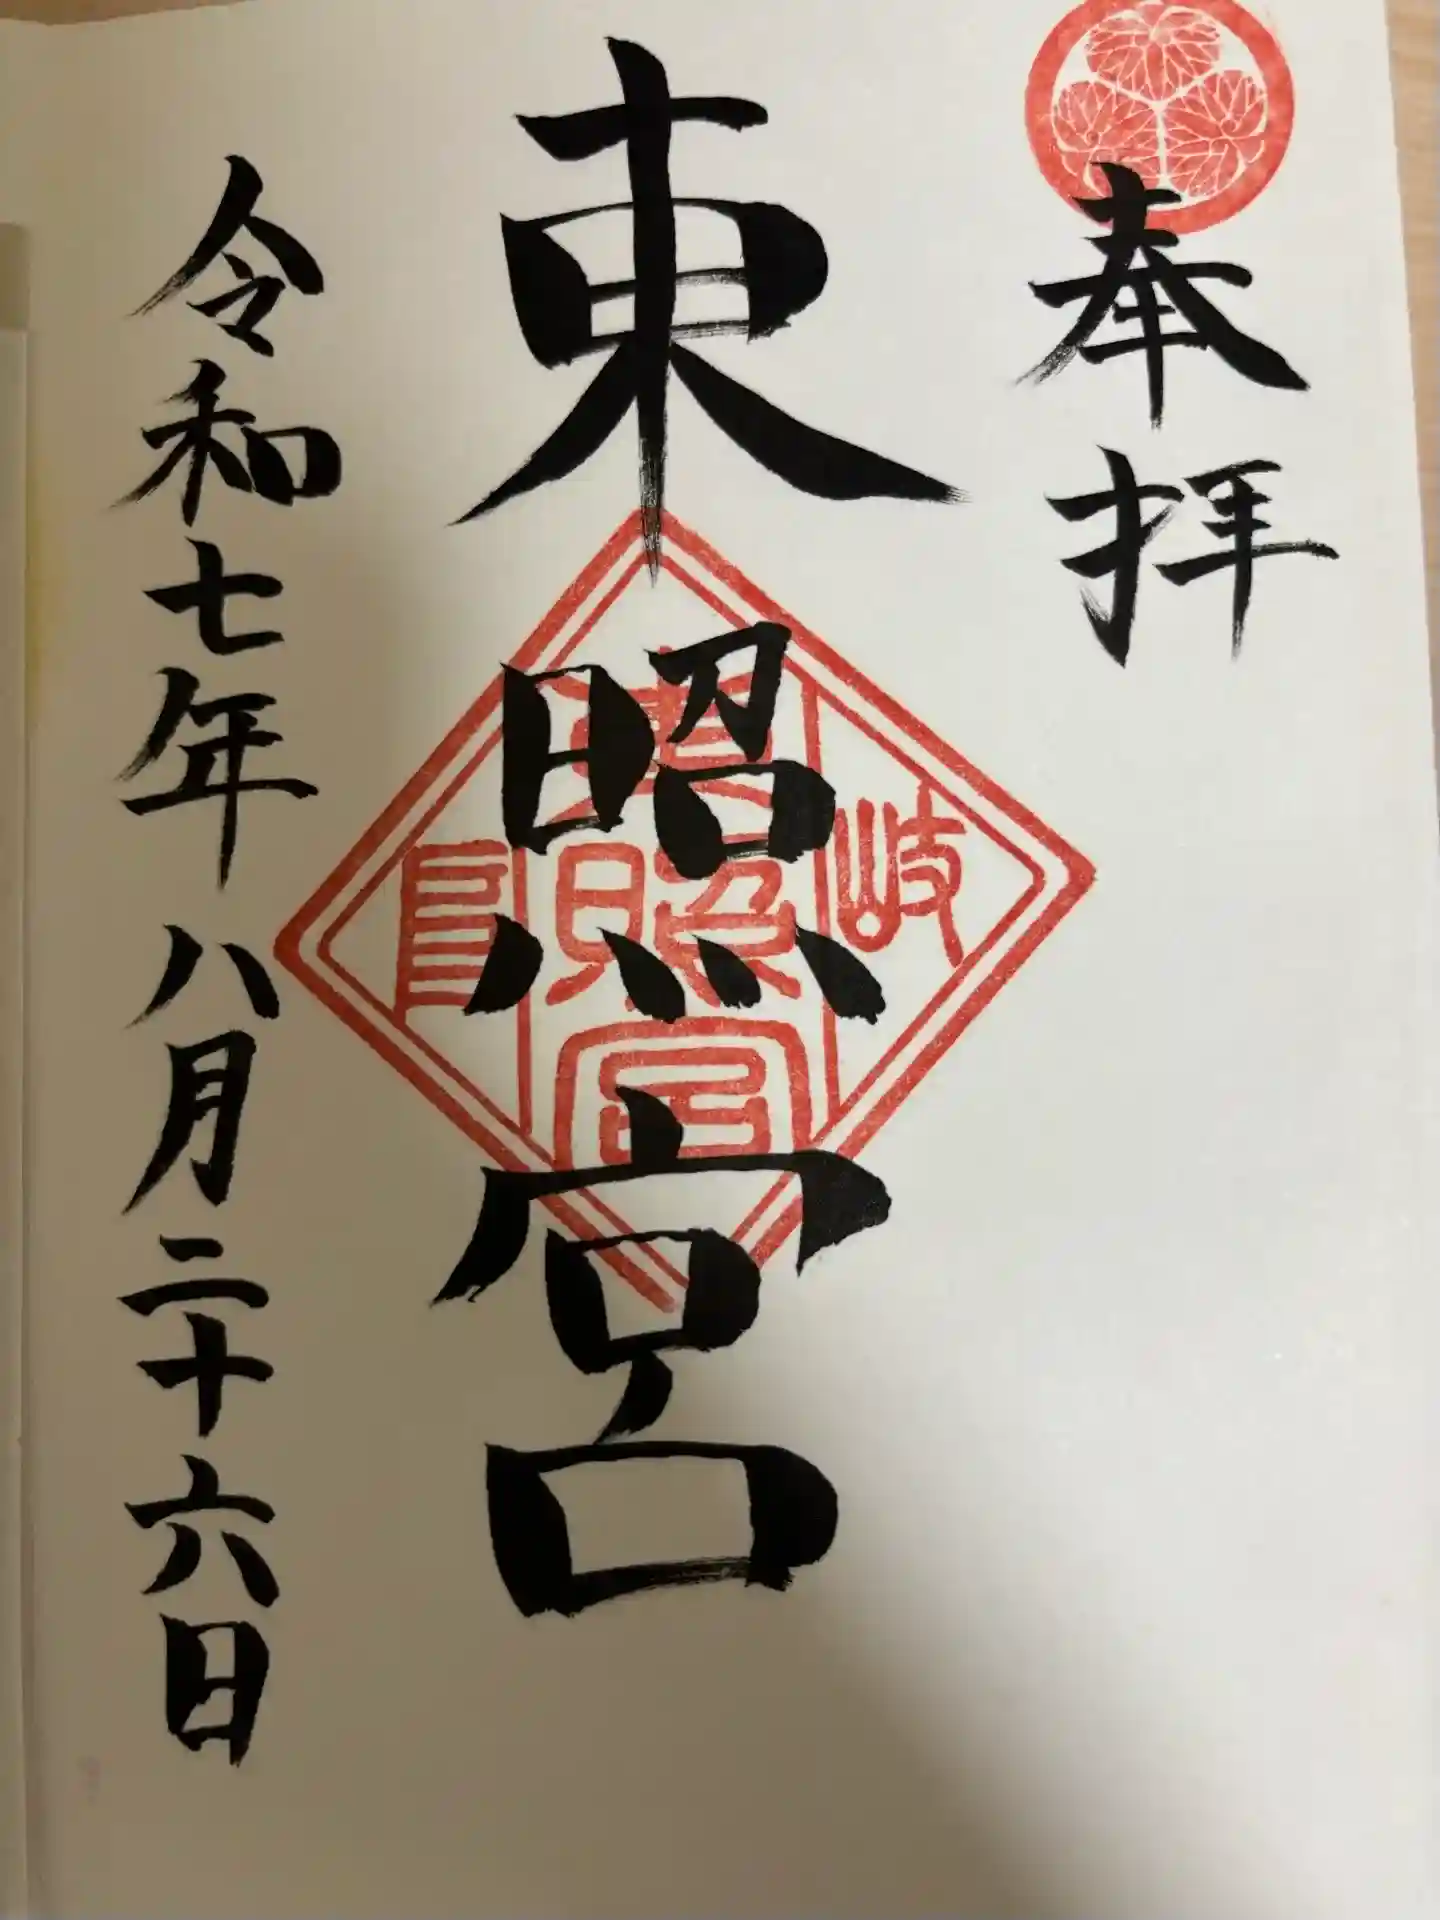 奉拝
東照宮
岐阜
東照宮
令和七年八月二十六日